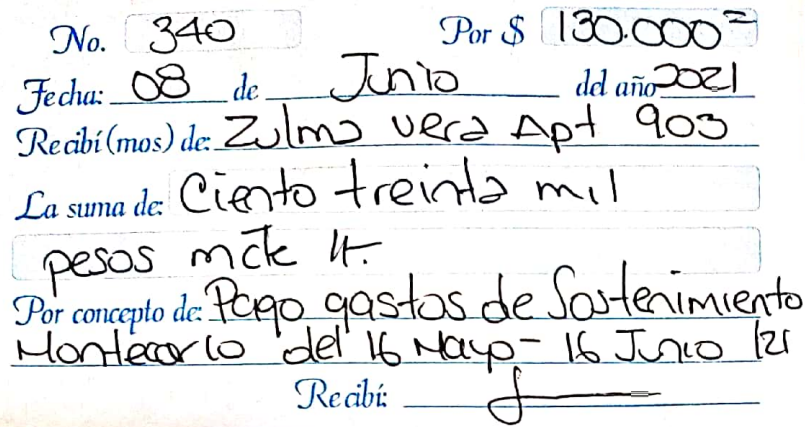 No. 340 Por $ 130.000=
Fecha: 08 de Junio del año 2021
Recibí(mos) de: Zulma vera Apt 903
La suma de: Ciento treinta mil
pesos mcte
Por concepto de: Pago gastos de Sostenimiento
Montecarlo del 16 Mayo - 16 Junio /21
Recibí: